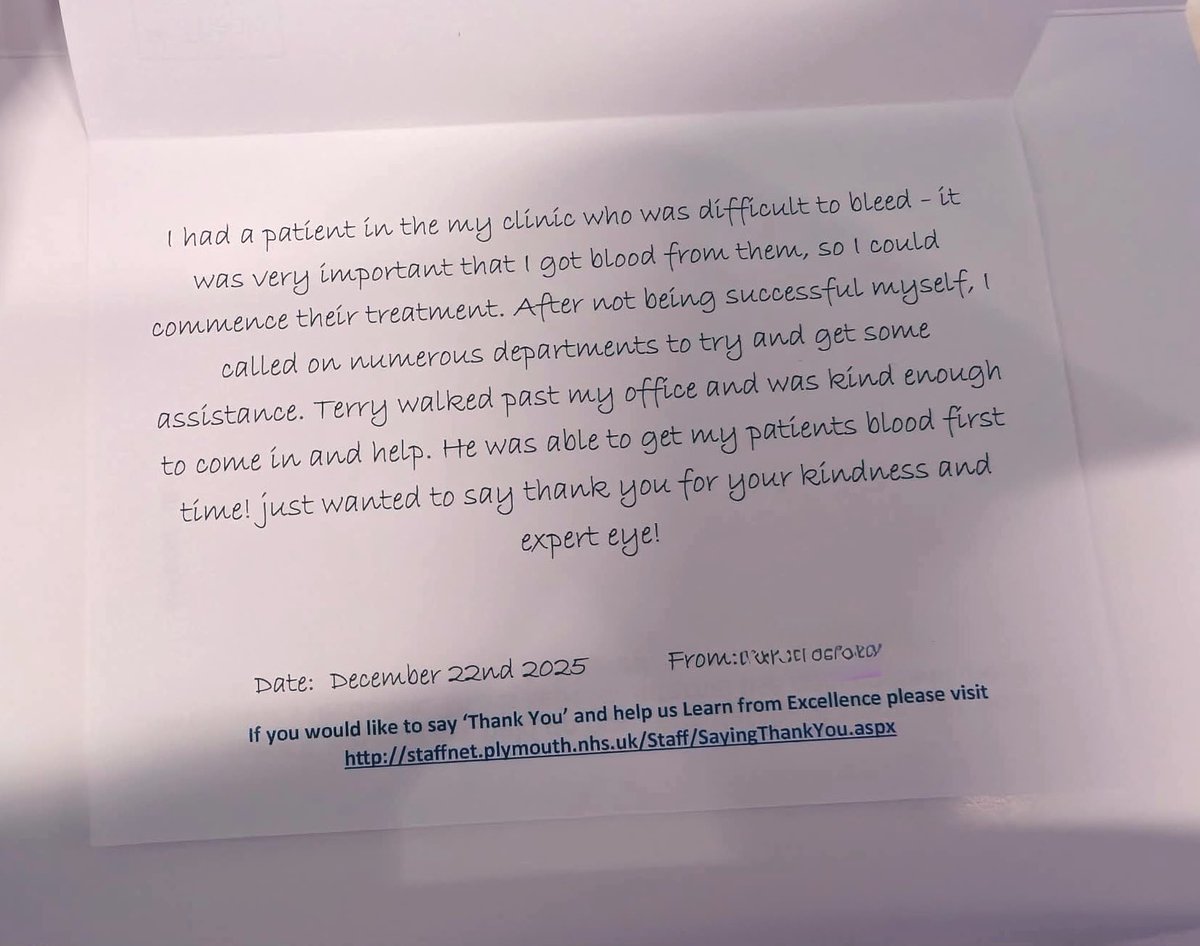 I had a patient in the my clinic who was difficult to bleed - it
was very important that I got blood from them, so I could
commence their treatment. After not being successful myself, I
called on numerous departments to try and get some
assistance. Terry walked past my office and was kind enough
to come in and help. He was able to get my patients blood first
time! just wanted to say thank you for your kindness and
expert eye!
Date: December 22nd 2025 From:
If you would like to say ‘Thank You’ and help us Learn from Excellence please visit
http://staffnet.plymouth.nhs.uk/Staff/SayingThankYou.aspx